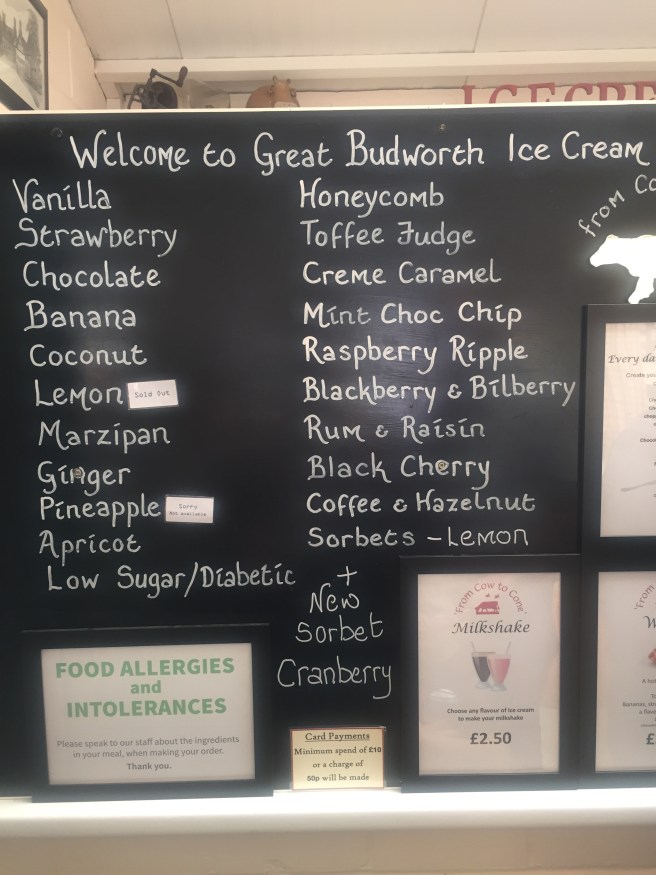 ICE CRE
Welcome to Great Budworth Ice Cream
Vanilla
Strawberry
Chocolate
Banana
Coconut
Lemon Sold Out
Marzipan
Ginger
Pineapple Sorry
Not available
Apricot
Low Sugar/Diabetic
Honeycomb
Toffee Fudge
Creme Caramel
Mint Choc Chip
Raspberry Ripple
Blackberry & Bilberry
Rum & Raisin
Black Cherry
Coffee & Hazelnut
Sorbets - Lemon
+
New
Sorbet
Cranberry
from Co
Every da
Create you
FOOD ALLERGIES
and
INTOLERANCES
Please speak to our staff about the ingredients
in your meal, when making your order.
Thank you.
Card Payments
Minimum spend of £10
or a charge of
50p will be made
'From Cow to Cone'
Milkshake
Choose any flavour of ice cream
to make your milkshake
£2.50
'From
W
A ho
Bananas, str
a flav
£